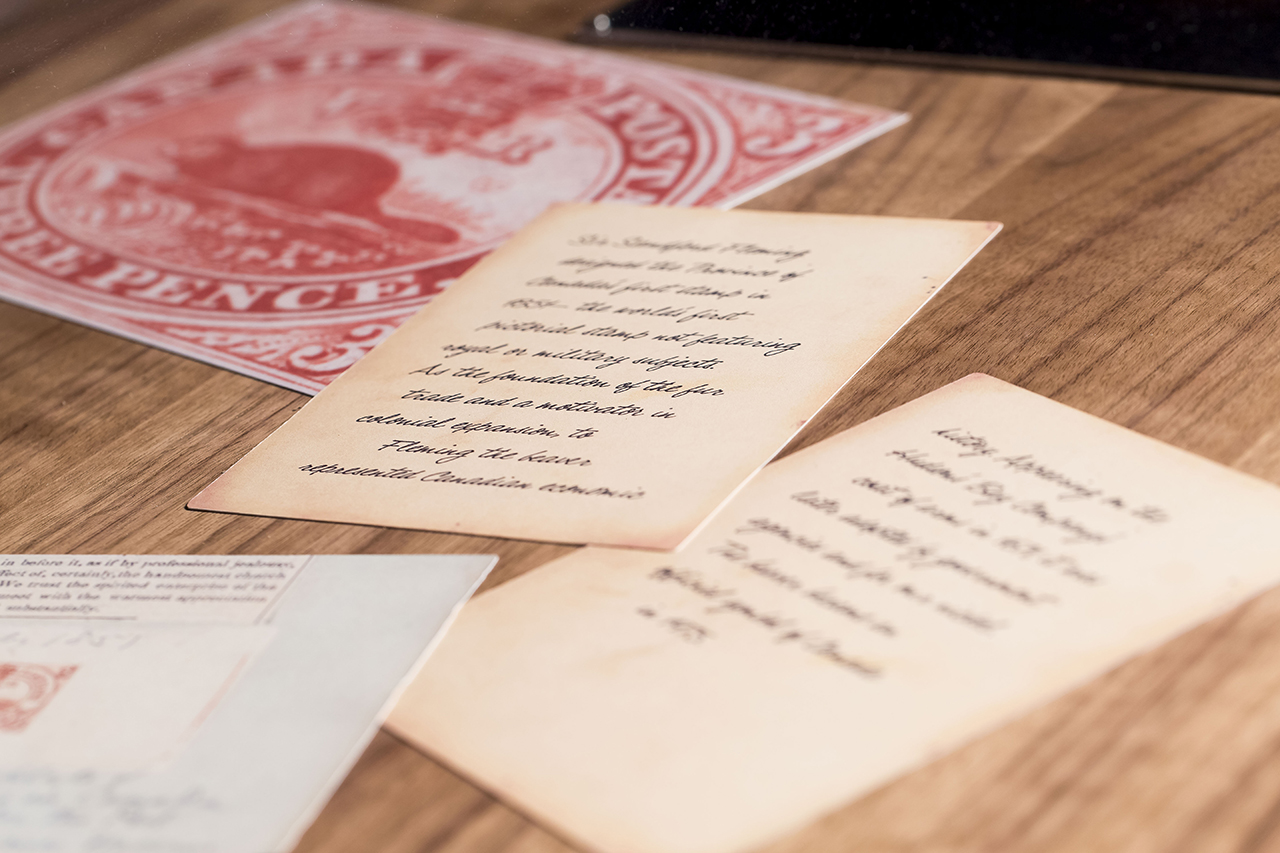 CANADA POSTA
THREE PENCE
Sir Sandford Fleming
designed the Province of
Canada's first stamp in
1851 - the worlds first
pictorial stamp not featuring
royal or military subjects.
As the foundation of the fur
trade and a motivator in
colonial expansion, to
Fleming the beaver
represented Canadian economic
history. Appearing on the
Hudson's Bay Company's
coat of arms in
later adopted by
The beaver became an
official symbol of Canada
in 1975.
in before it, as if by professional jealousy,
fect of, certainly, the handsomest church
We trust the spirited examples of the
meet with the warmest appreciation
substantially.
1851